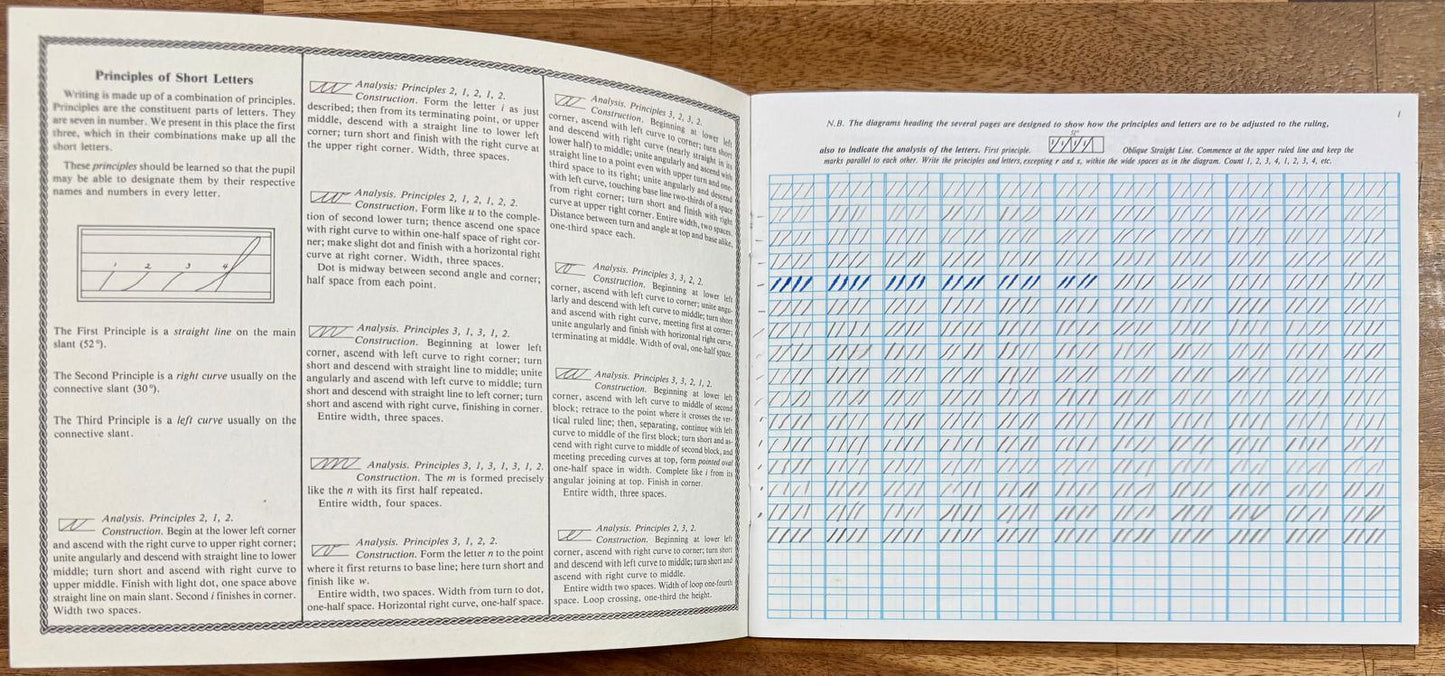 Principles of Short Letters
Writing is made up of a combination of principles.
Principles are the constituent parts of letters. They
are seven in number. We present in this place the first
three, which in their combinations make up all the
short letters.
These principles should be learned so that the pupil
may be able to designate them by their respective
names and numbers in every letter.
1 2 3 4
The First Principle is a straight line on the main
slant (52°).
The Second Principle is a right curve usually on the
connective slant (30°).
The Third Principle is a left curve usually on the
connective slant.
Analysis. Principles 2, 1, 2.
Construction. Begin at the lower left corner
and ascend with the right curve to upper right corner;
unite angularly and descend with straight line to lower
middle; turn short and ascend with right curve to
upper middle. Finish with light dot, one space above
straight line on main slant. Second i finishes in corner.
Width two spaces.
Analysis: Principles 2, 1, 2, 1, 2.
Construction. Form the letter i as just
described; then from its terminating point, or upper
middle, descend with a straight line to lower left
corner; turn short and finish with the right curve at
the upper right corner. Width, three spaces.
Analysis. Principles 2, 1, 2, 1, 2, 2.
Construction. Form like u to the comple-
tion of second lower turn; thence ascend one space
with right curve to within one-half space of right cor-
ner; make slight dot and finish with a horizontal right
curve at right corner. Width, three spaces.
Dot is midway between second angle and corner;
half space from each point.
Analysis. Principles 3, 1, 3, 1, 2.
Construction. Beginning at lower left
corner, ascend with left curve to right corner; turn
short and descend with straight line to middle; unite
angularly and ascend with left curve to middle; turn
short and descend with straight line to left corner; turn
short and ascend with right curve, finishing in corner.
Entire width, three spaces.
Analysis. Principles 3, 1, 3, 1, 3, 1, 2.
Construction. The m is formed precisely
like the n with its first half repeated.
Entire width, four spaces.
Analysis. Principles 3, 1, 2, 2.
Construction. Form the letter n to the point
where it first returns to base line; here turn short and
finish like w.
Entire width, two spaces. Width from turn to dot,
one-half space. Horizontal right curve, one-half space.
Analysis. Principles 3, 2, 3, 2.
Construction. Beginning at lower left
corner, ascend with left curve to corner; turn short
and descend with right curve (nearly straight in its
lower half) to middle; unite angularly and ascend with
straight line to a point even with upper turn and one-
third space to its right; unite angularly and descend
with left curve, touching base line two-thirds of a space
from right corner; turn short and finish with right
curve at upper right corner. Entire width, two spaces.
Distance between turn and angle at top and base alike,
one-third space each.
Analysis. Principles 3, 3, 2, 2.
Construction. Beginning at lower left
corner, ascend with left curve to corner; unite angu-
larly and descend with left curve to middle; turn short
and ascend with right curve, meeting first at corner;
unite angularly and finish with horizontal right curve,
terminating at middle. Width of oval, one-half space.
Analysis. Principles 3, 3, 2, 1, 2.
Construction. Beginning at lower left
corner, ascend with left curve to middle of second
block; retrace to the point where it crosses the ver-
tical ruled line; then, separating, continue with left
curve to middle of the first block; turn short and as-
cend with right curve to middle of second block, and
meeting preceding curves at top, form pointed oval
one-half space in width. Complete like i from its
angular joining at top. Finish in corner.
Entire width, three spaces.
Analysis. Principles 2, 3, 2.
Construction. Beginning at lower left
corner, ascend with right curve to corner; turn short
and descend with left curve to middle; turn short and
ascend with right curve to middle.
Entire width two spaces. Width of loop one-fourth
space. Loop crossing, one-third the height.
1
N.B. The diagrams heading the several pages are designed to show how the principles and letters are to be adjusted to the ruling,
also to indicate the analysis of the letters. First principle. Oblique Straight Line. Commence at the upper ruled line and keep the
marks parallel to each other. Write the principles and letters, excepting r and s, within the wide spaces as in the diagram. Count 1, 2, 3, 4, 1, 2, 3, 4, etc.